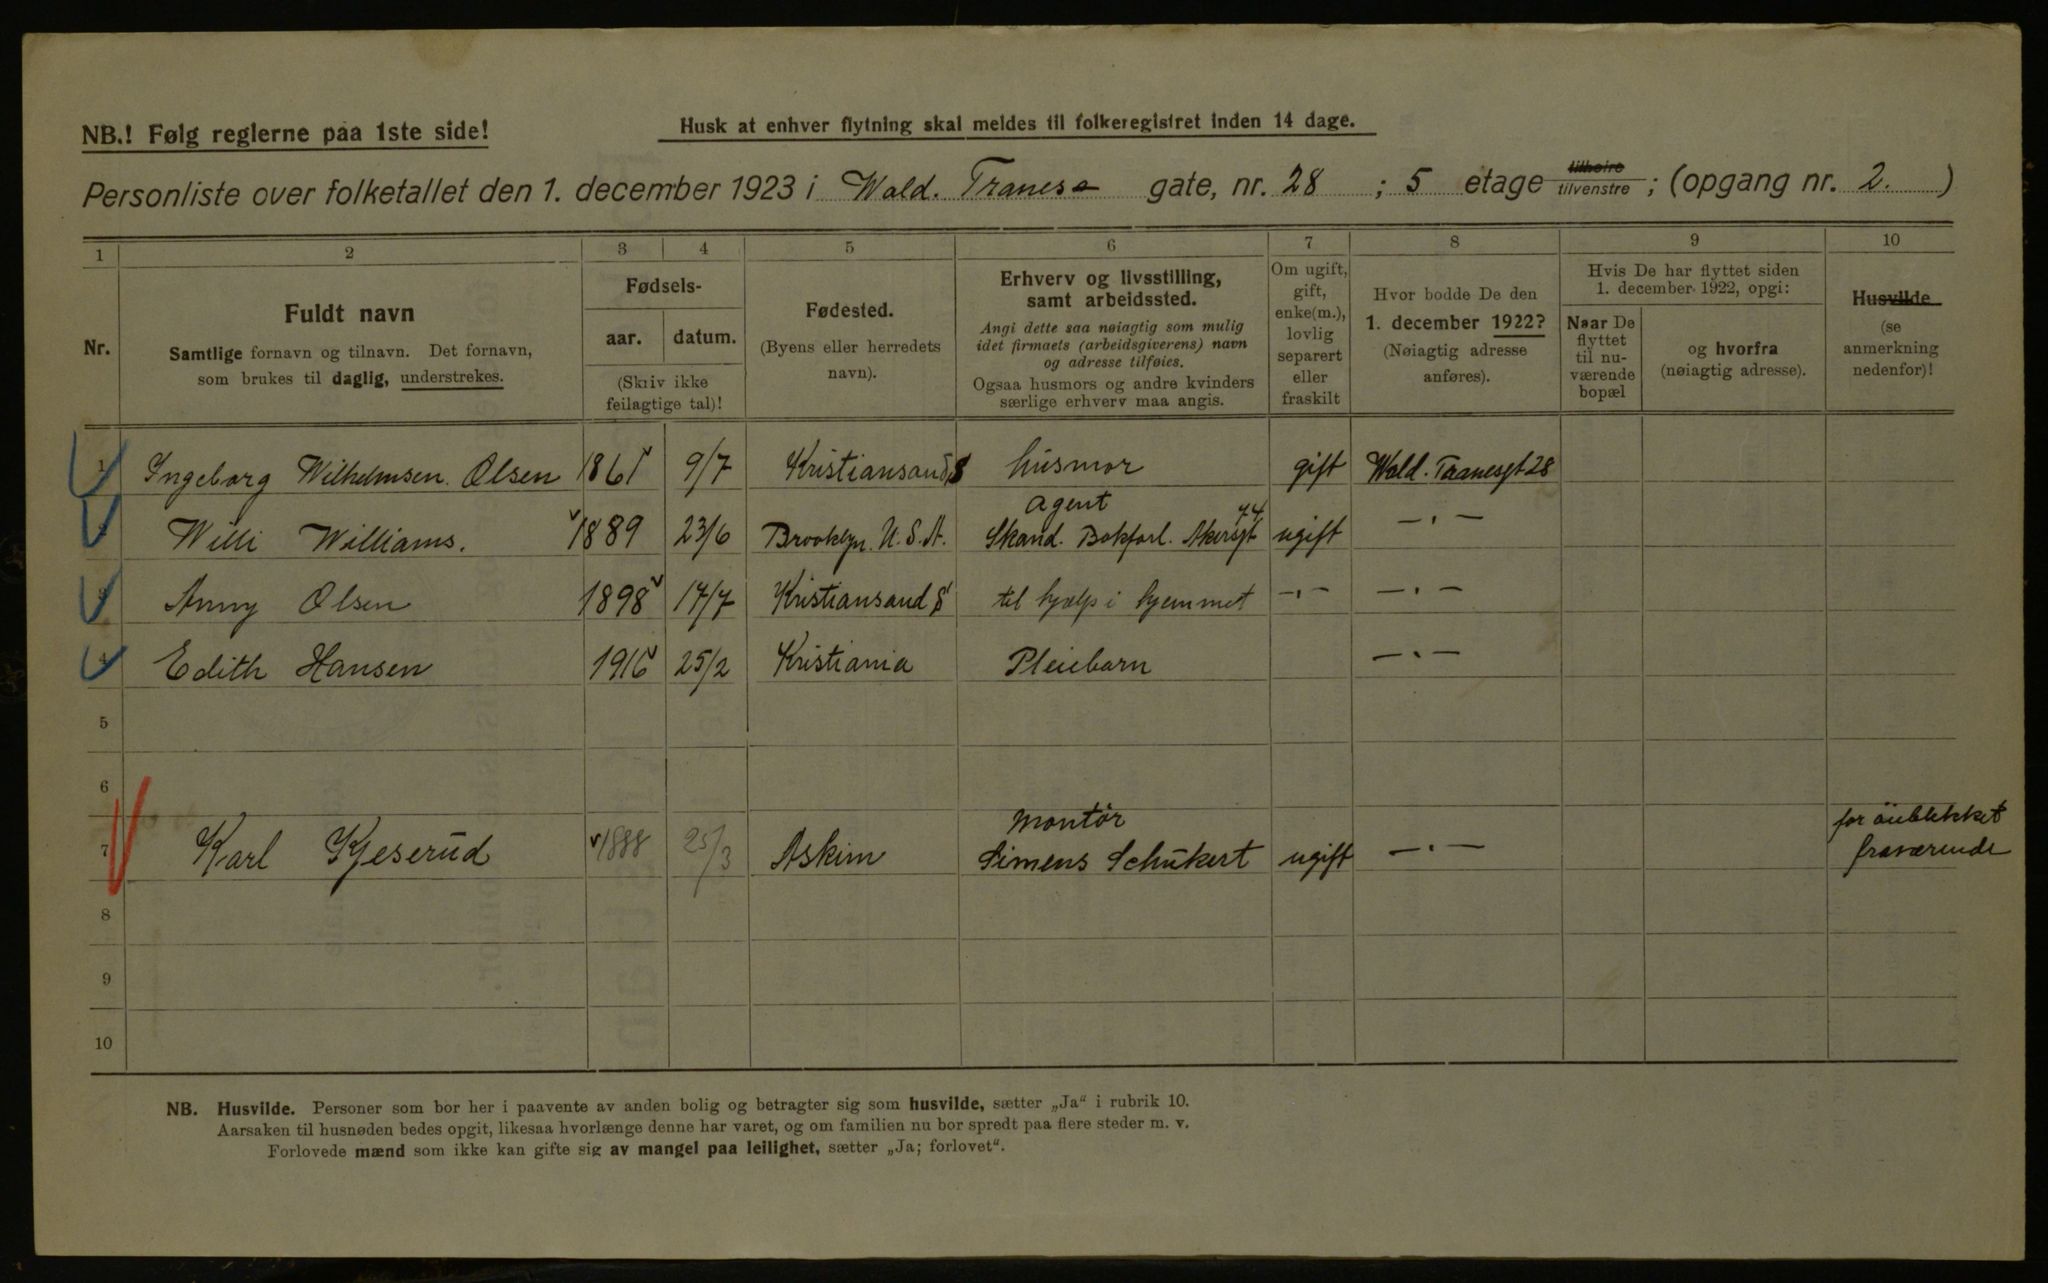 NB.! Følg reglerne paa 1ste side!
Husk at enhver flytning skal meldes til folkeregistret inden 14 dage.
Personliste over folketallet den 1. december 1923 i Wald. Tranes gate, nr. 28 ; 5 etage tilhøire tilvenstre ; (opgang nr. 2. )
1 2 3 4 5 6 7 8 9 10
Nr.
Fuldt navn
Samtlige fornavn og tilnavn. Det fornavn,
som brukes til daglig, understrekes.
Fødsels-
aar. datum.
(Skriv ikke
feilagtige tal)!
Fødested.
(Byens eller herredets
navn).
Erhverv og livsstilling,
samt arbeidssted.
Angi dette saa nøiagtig som mulig
idet firmaets (arbeidsgiverens) navn
og adresse tilføies.
Ogsaa husmors og andre kvinders
særlige erhverv maa angis.
Om ugift,
gift,
enke(m.),
lovlig
separert
eller
fraskilt
Hvor bodde De den
1. december 1922?
(Nøiagtig adresse
anføres).
Hvis De har flyttet siden
1. december 1922, opgi:
Naar De
flyttet
til nu-
værende
bopæl
og hvorfra
(nøiagtig adresse).
Husvilde
(se
anmerkning
nedenfor)!
1 Ingeborg Wilhelmsen Olsen 1861 9/7 Kristiansand S husmor gift Wald. Tranesgt 28
Agent 74
2 Willi Williams. 1889 23/6 Brooklyn. U.S.A. Skand. Bokforl. Akersgt ugift —"—
3 Anny Olsen 1898 17/7 Kristiansand S til hjælp i hjemmet —"— —"—
4 Edith Hansen 1916 25/2 Kristiania Pleiebarn —"—
5
6
Montör for öieblikket
7 Karl Kjeserud 1888 25/3 Askim Simens Schükert ugift —"— fraværende
8
9
10
NB. Husvilde. Personer som bor her i paavente av anden bolig og betragter sig som husvilde, sætter „Ja“ i rubrik 10.
Aarsaken til husnøden bedes opgit, likesaa hvorlænge denne har varet, og om familien nu bor spredt paa flere steder m. v.
Forlovede mænd som ikke kan gifte sig av mangel paa leilighet, sætter „Ja; forlovet“.